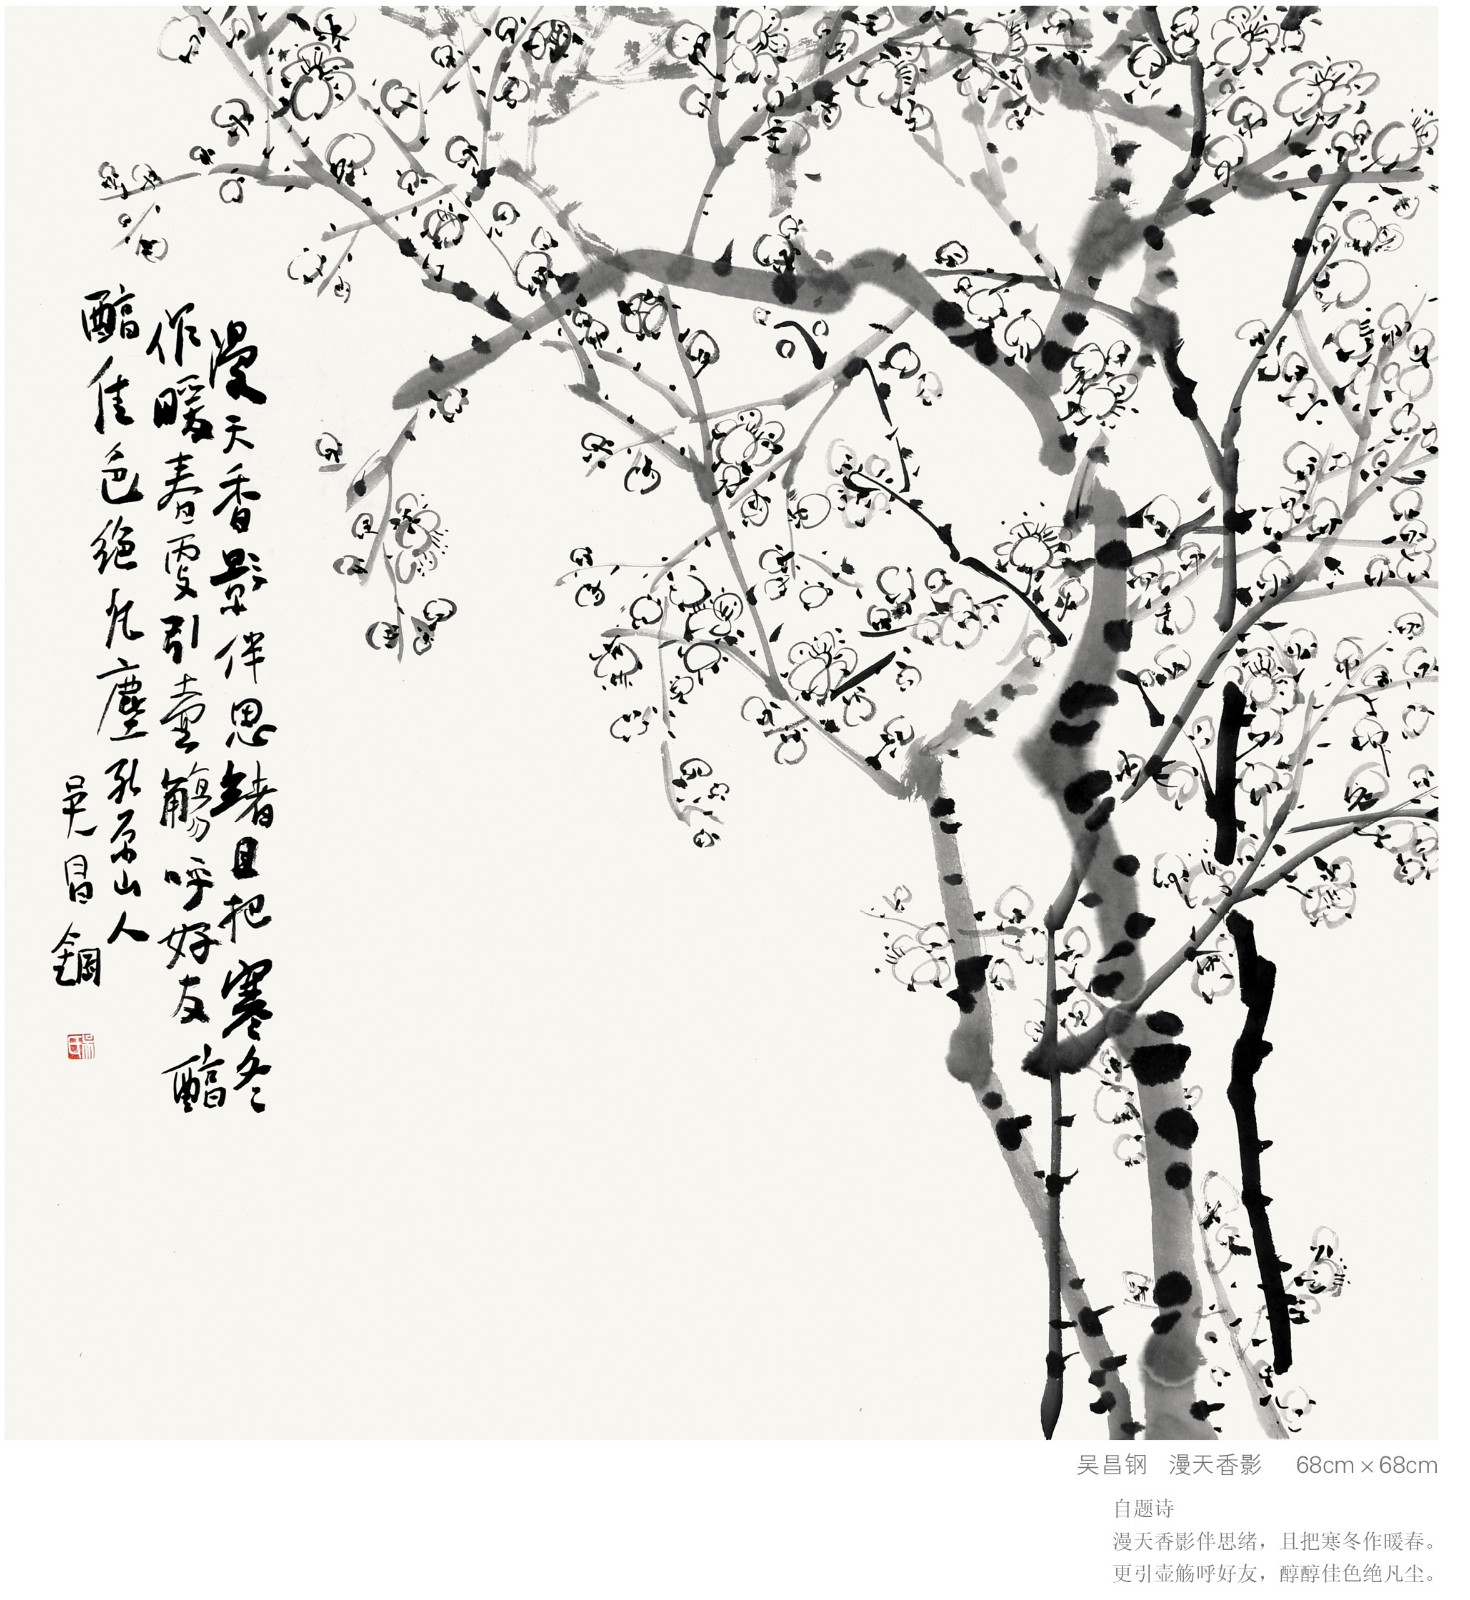 漫天香影伴思緒且把寒冬
作暖春更引壺觴呼好友醇
醇佳色絶凡塵 山人
吳昌鋼
吴昌钢 漫天香影 68cm×68cm
自题诗
漫天香影伴思绪，且把寒冬作暖春。
更引壶觞呼好友，醇醇佳色绝凡尘。